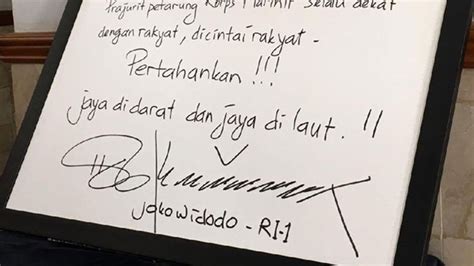 Prajurit petarung Korps Marinir selalu dekat
dengan rakyat, dicintai rakyat -
Pertahankan !!!
jaya di darat dan jaya di laut. !!
Jokowidodo - RI-1